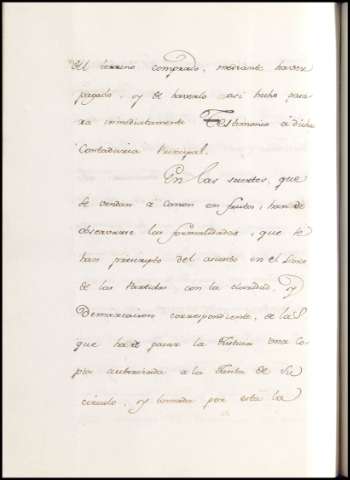 del terreno comprado, mediante haver
pagado, y de haverlo asi hecho pasa-
ra inmediatamente Testimonio á dicha
Contaduria Principal.
En las suertes, que
se vendan á censo en frutos, han de
observarse las formalidades, que se
han prescripto del asiento en el Libro
de las Partidas con la claridad, y
Demarcacion correspondiente, de las
que ha de pasar la Justicia una co-
pia autorizada a la Junta de su
circulo, y tomada por esta la